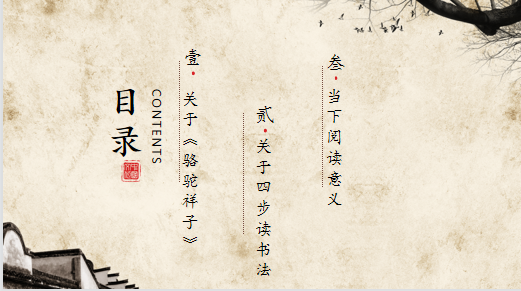 目录
CONTENTS
壹·关于《骆驼祥子》
贰·关于四步读书法
叁·当下阅读意义